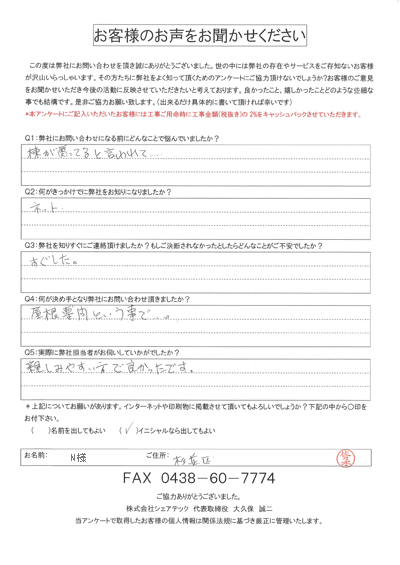 お客様のお声をお聞かせください
この度は弊社にお問い合わせを頂き誠にありがとうございました。世の中には弊社の存在やサービスをご存知ないお客様
が沢山いらっしゃいます。その方たちに弊社をよく知って頂くためのアンケートにご協力頂けないでしょうか?お客様のご意見
をお聞かせいただき今後の活動に反映させていただきたいと考えております。良かったこと、嬉しかったことどのような些細な
事でも結構です。是非ご協力お願い致します。(出来るだけ具体的に書いて頂ければ幸いです)
*本アンケートにご記入いただいたお客様には工事ご用命時に工事金額(税抜き)の2%をキャッシュバックさせていただきます。
Q1:弊社にお問い合わせになる前にどんなことで悩んでいましたか?
棟が曲ってると言われて…
Q2:何がきっかけでに弊社をお知りになりましたか?
ネット
Q3:弊社を知りすぐにご連絡頂けましたか?もしご決断されなかったとしたらどんなことがご不安でしたか?
すぐした。
Q4:何が決め手となり弊社にお問い合わせ頂きましたか?
屋根専門という事で…。
Q5:実際に弊社担当者がお伺いしていかがでしたか?
親しみやすい方で良かったです。
*上記についてお願いがあります。インターネットや印刷物に掲載させて頂いてもよろしいでしょうか?下記の中から〇印を
お付下さい。
( )名前を出してもよい (✓)イニシャルなら出してもよい
お名前: N様 ご住所: 杉並区
FAX 0438-60-7774
ご協力ありがとうございました。
株式会社シェアテック 代表取締役 大久保 誠二
当アンケートで取得したお客様の個人情報は関係法規に基づき厳正に管理いたします。